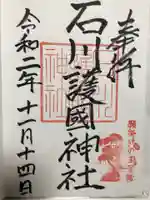 奉拝
石川護國神社
令和二年十一月十四日